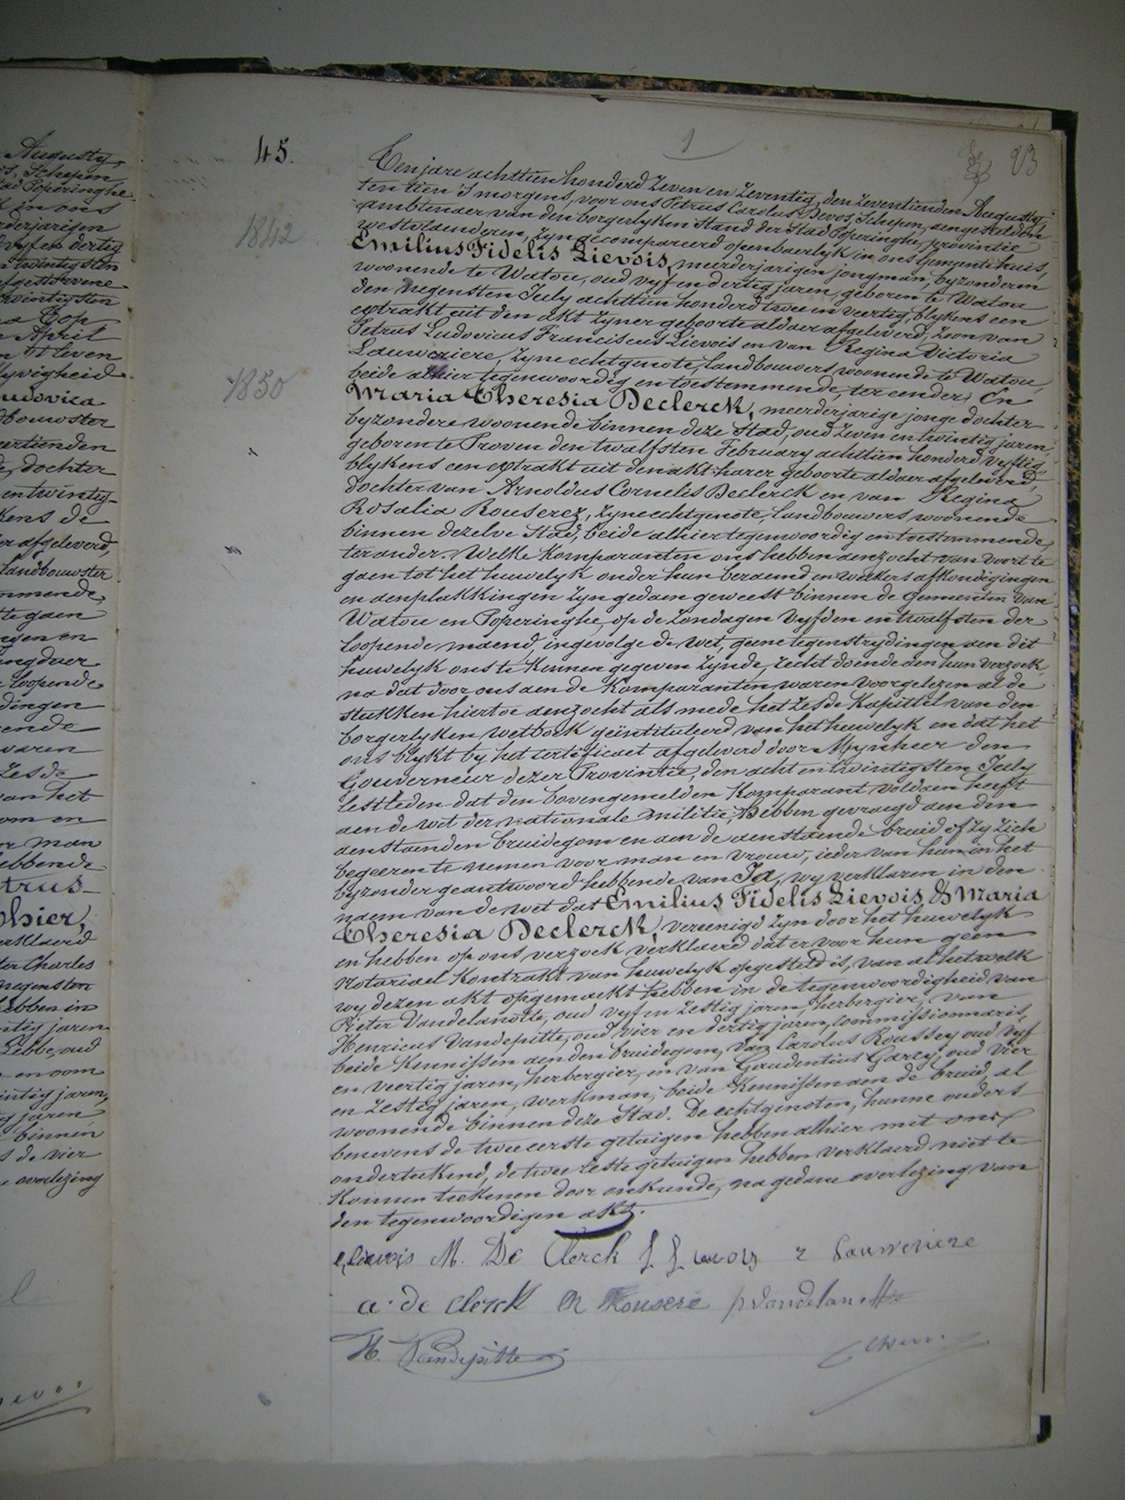 Augusty
Schepen
Poperinghe
in ons
derjarigen
vyf en dertig
twintigsten
afgestorvene
twintigsten
Cop
April
leven
ludovica
landbouwster
dochter
en twintig
kens de
afgeleverd,
landbouwster
te gaen
loopende
waren
zesde
van het
om en
man
hebbende
trus
phier,
verklaerd
ter Charles
negensten
hebben in
jaren
oud
en oom
jaren
binnen
de vier
overlezing
1
23
45.
1842
1850
Ten jare achttien honderd zeven en zeventig, den zeventienden Augusty
ten tien 's morgens, voor ons Petrus Carolus Devos, Schepen, aengesteldend
Ambtenaer van den borgerlyken stand der Stad Poperinghe, provintie
westvlaenderen, zyn gecompareerd openbaerlyk in ons gemeentehuis,
Emilius Fidelis Lievois, meerderjarigen jongman, byzonderen
woonende te Watou, oud vyf en dertig jaren, geboren te Watou
den negensten July achttien honderd twee en veertig, blykens een
extrakt uit den akt zyner geboorte aldaer afgeleverd, zoon van
Petrus Ludovicus Franciscus Lievois en van Regina Victoria
Lauweriere, zyne echtgenote, landbouwers, woonende te Watou,
beide alhier tegenwoordig en toestemmende, ter eender; En
Maria Theresia Declerck, meerderjarige jonge dochter
byzondere woonende binnen deze Stad, oud zeven en twintig jaren,
geboren te Proven den twalfsten February achttien honderd vyftig,
blykens een extrakt uit den akt harer geboorte aldaer afgeleverd,
dochter van Arnoldus Cornelis Declerck en van Regina
Rosalia Rouserez, zyne echtgenote, landbouwers woonende
binnen dezelve Stad, beide alhier tegenwoordig en toestemmende,
ter ander. Welke Komparanten ons hebben aenzocht van voort te
gaen tot het huwelyk onder hun beraemd en welkers afkondigingen
en aenplakkingen zyn gedaen geweest binnen de Gemeenten van
Watou en Poperinghe, op de Zondagen vyfden en twalfsten der
loopende maend, ingevolge de wet, geene tegenstrydingen aen dit
huwelyk ons te kennen gegeven zynde, recht doende aen hun verzoek,
na dat door ons aen de Komparanten waren voorgelezen al de
stukken hiertoe aenzocht als mede het zesde Kapittel van den
borgerlyken wetboek geïntituleerd van het huwelyk en dat het
ons blykt by het certificaet afgeleverd door Mynheer den
Gouverneur dezer Provintie, den acht en twintigsten July
lestleden dat den bovengemelden Komparant voldaen heeft
aen de wet der nationale militie; Hebben gevraegd aen den
aenstaenden bruidegom en aen de aenstaende bruid of zy zich
begeeren te nemen voor man en vrouw, ieder van hun in het
byzonder geantwoord hebbende van Ja, wy verklaren in den
naem van de wet dat Emilius Fidelis Lievois & Maria
Theresia Declerck, vereenigd zyn door het huwelyk
en hebben op ons verzoek verklaerd dat er voor hun geen
Notariael Kontrakt van huwelyk opgesteld is, van al hetwelk
wy dezen akt opgemaekt hebben in de tegenwoordigheid van
Pieter Vandelanoite, oud vyf en zestig jaren, herbergier, van
Henricus Vandepitte, oud vier en dertig jaren, Commissionnaris,
beide Kennissen aen den bruidegom, van Carolus Roussey oud vyf
en veertig jaren, herbergier, en van Gaudentius Garcy, oud vier
en zestig jaren, werkman, beide Kennissen aen de bruid, al
woonende binnen deze Stad. De echtgenoten, hunne ouders
benevens de twee eerste getuigen hebben alhier met ons
onderteekend, de twee leste getuigen hebben verklaerd niet te
konnen teekenen door onkunde, na gedane overlezing van
den tegenwoordigen akt.
e. lievois M. De Clerck Lauweriere
a. de Clerck R Rousere p vandelanoitte
H. Vandepitte